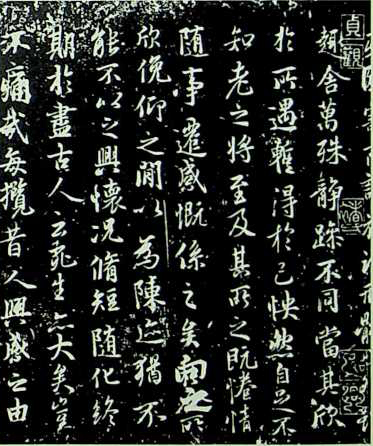 貞觀
趣舍萬殊靜躁不同當其欣
於所遇蹔得於己怏然自足不
知老之將至及其所之既惓情
隨事遷感慨係之矣向之所
欣俛仰之間以為陳迹猶不
能不以之興懷況脩短隨化終
期於盡古人云死生亦大矣豈
不痛哉每攬昔人興感之由